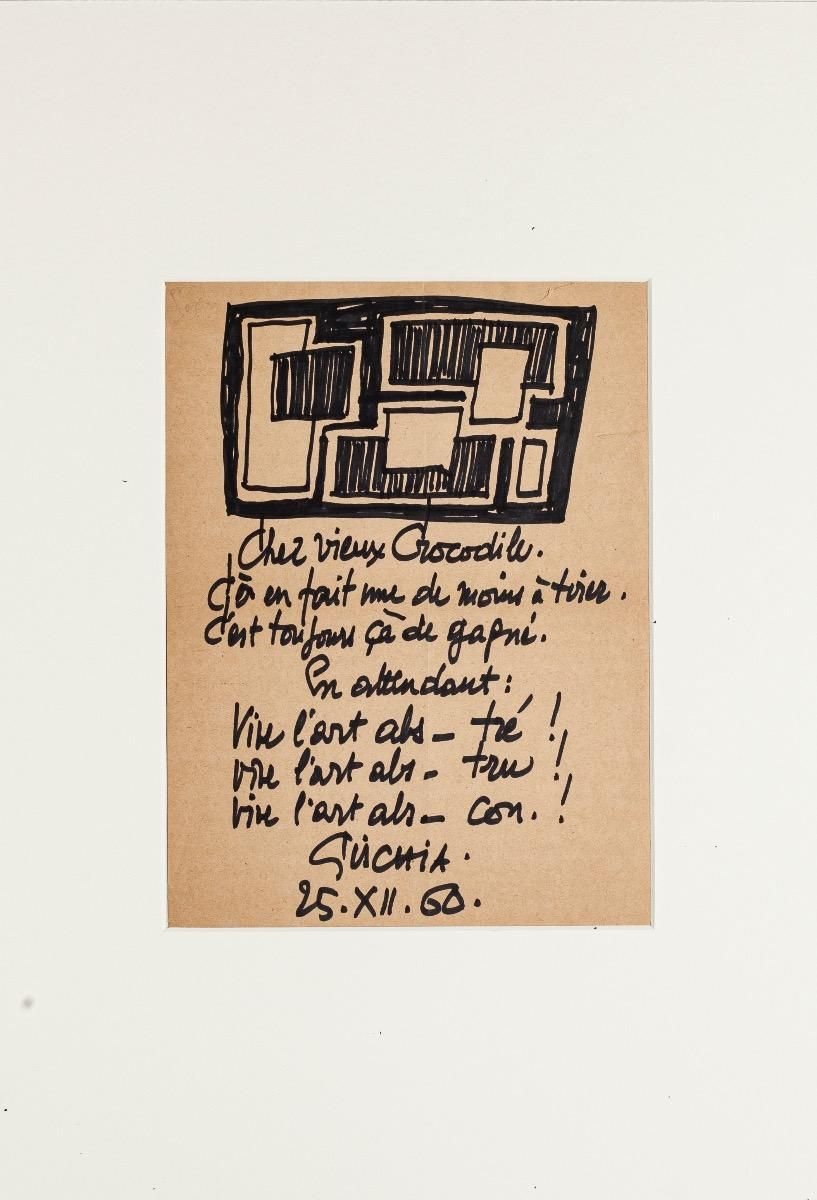 Cher vieux Crocodile.
Çà en fait une de moins à tirer.
C'est toujours çà de gagné.
En attendant :
Vive l'art abs - tré !
vive l'art abs - tru !
vive l'art abs - con. !
GÜCHIA.
25.XII.60.